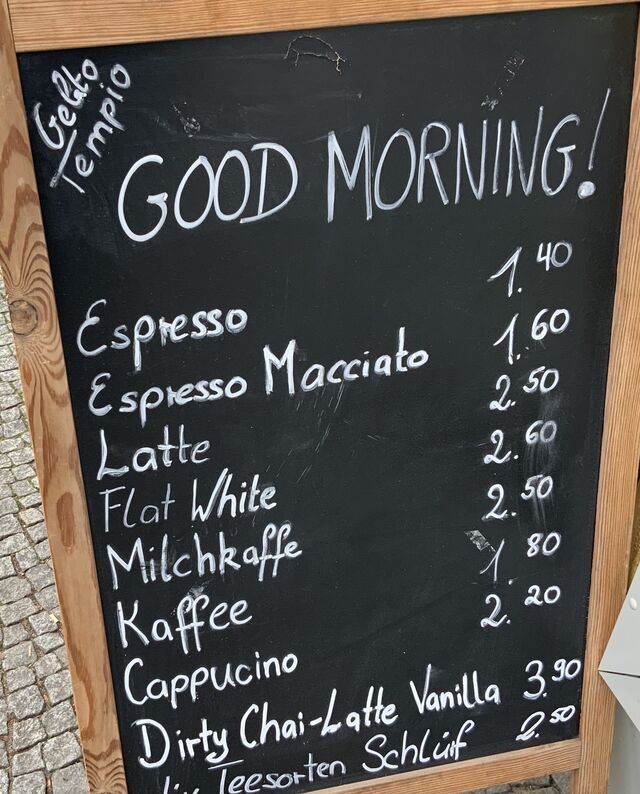 Gelato
Tempio
GOOD MORNING!
Espresso 1.40
Espresso Macciato 1.60
Latte 2.50
Flat White 2.60
Milchkaffe 2.50
Kaffee 1.80
Cappucino 2.20
Dirty Chai-Latte Vanilla 3.90
Teesorten Schlürf 2.50